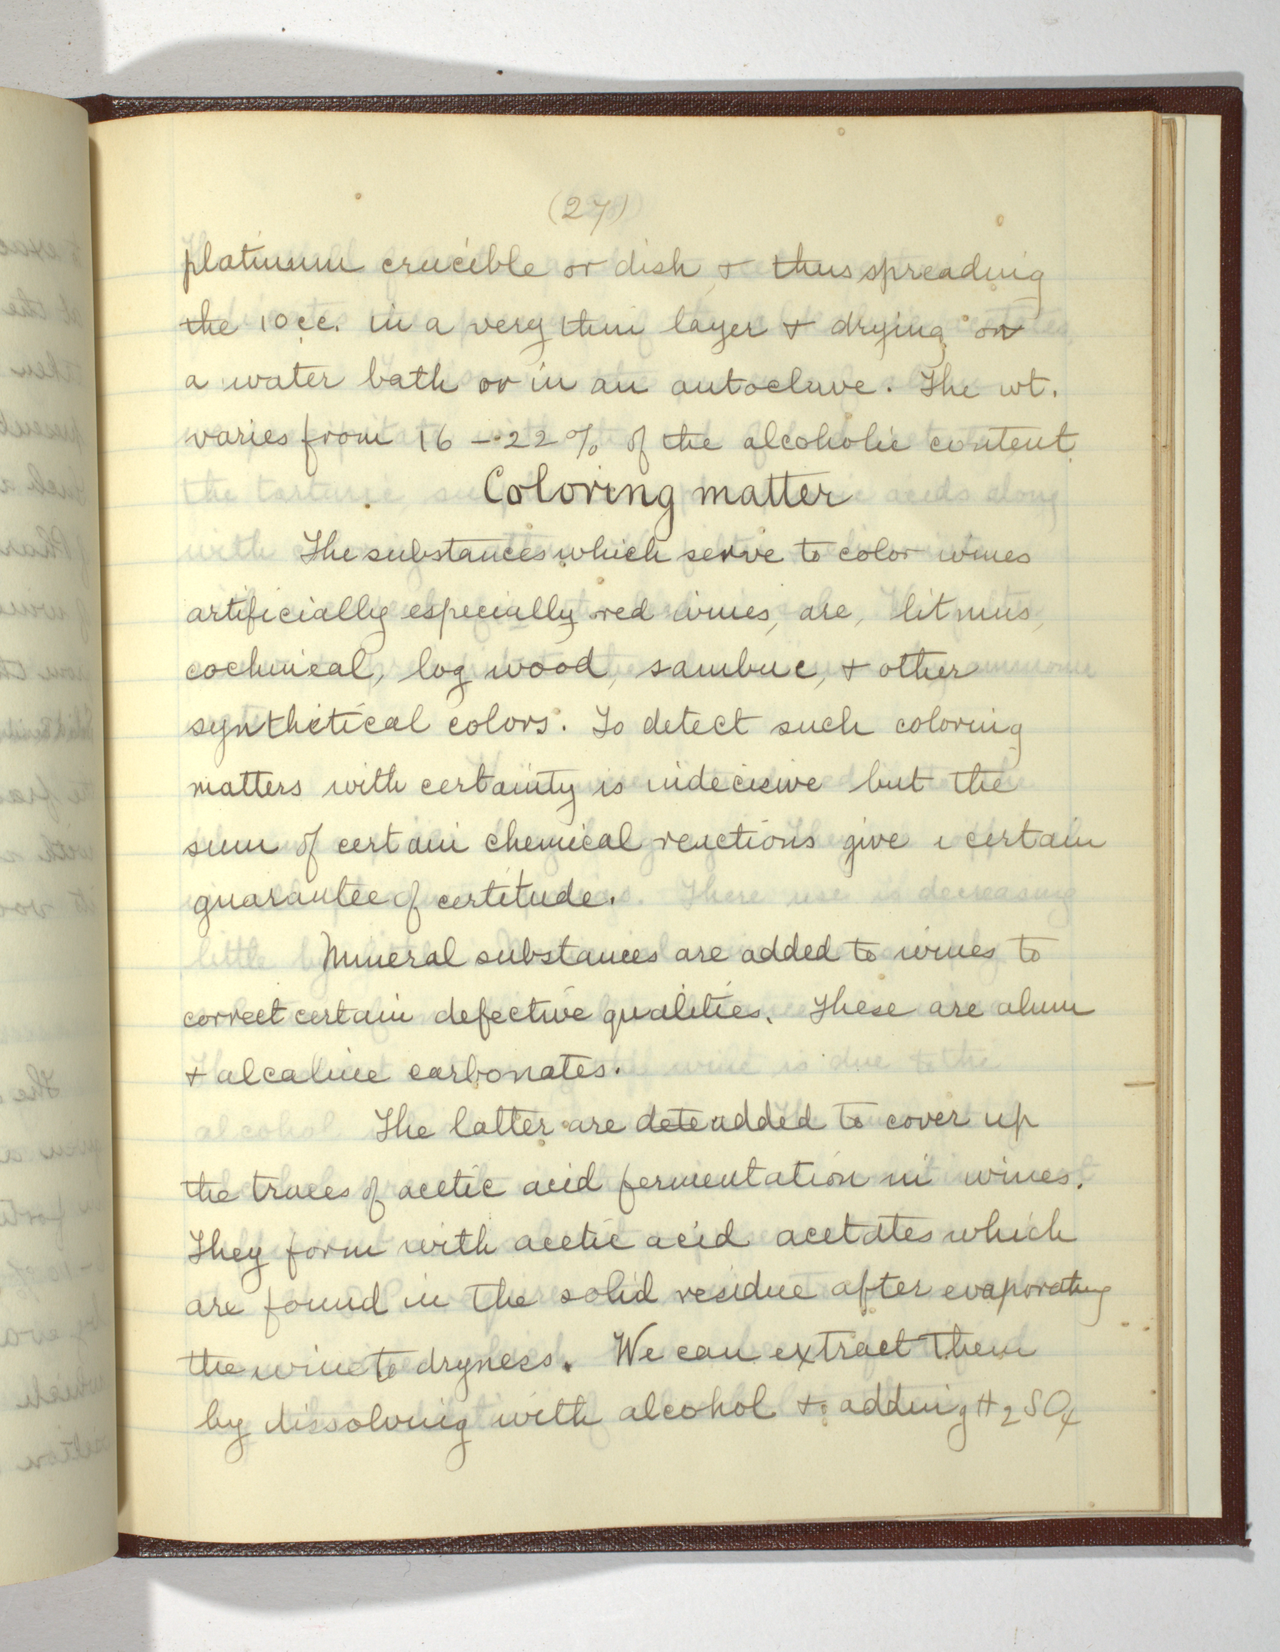 (27)
platinum crucible or dish, & thus spreading
the 10cc. in a very thin layer & drying on
a water bath or in an autoclave. The wt.
varies from 16 - 22% of the alcoholic content
Coloring matter
The substances which serve to color wines
artificially especially red wines, are, litmus,
cochineal, log wood, sambuc, & other
synthetical colors. To detect such coloring
matters with certainty is indecisive but the
sum of certain chemical reactions give a certain
guarantee of certitude.
Mineral substances are added to wines to
correct certain defective qualities. These are alum
& alcaline carbonates.
The latter are dete added to cover up
the traces of acetic acid fermentation in wines.
They form with acetic acid acetates which
are found in the solid residue after evaporating
the wine to dryness. We can extract them
by dissolving with alcohol & adding H2SO4